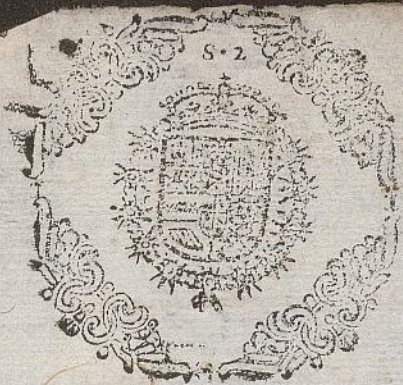 S • 2